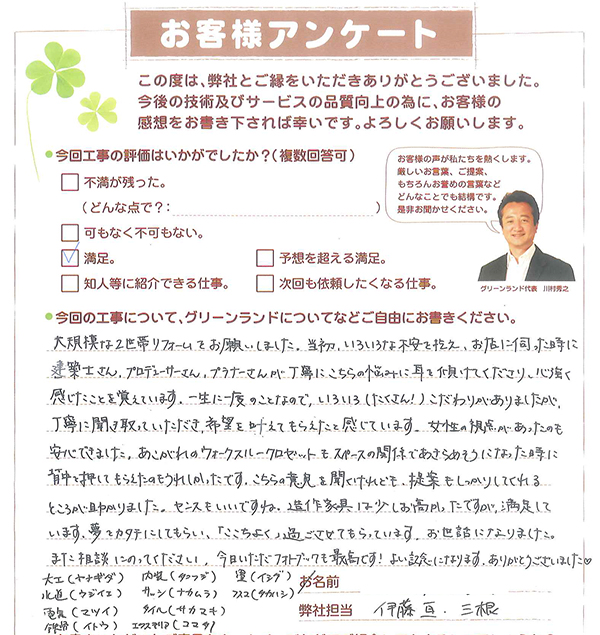 お客様アンケート
この度は、弊社とご縁をいただきありがとうございました。
今後の技術及びサービスの品質向上の為に、お客様の
感想をお書き下されば幸いです。よろしくお願いします。
今回工事の評価はいかがでしたか？(複数回答可)
不満が残った。
(どんな点で？: )
可もなく不可もない。
満足。
予想を超える満足。
知人等に紹介できる仕事。
次回も依頼したくなる仕事。
お客様の声が私たちを熱くします。
厳しいお言葉、ご提案、
もちろんお誉めの言葉など
どんなことでも結構です。
是非お聞かせください。
グリーンランド代表 川村秀之
今回の工事について、グリーンランドについてなどご自由にお書きください。
大規模な2世帯リフォームをお願いしました。当初、いろいろな不安を抱え、お店に伺った時に
建築士さん、プロデューサーさん、プランナーさんが丁寧にこちらの悩みに耳を傾けてくださり、心強く
感じたことを覚えています。一生に一度のことなので、いろいろ(たくさん!)こだわりがありましたが、
丁寧に聞き取っていただき、希望を叶えてもらえたと感じています。女性の視点があったのも
安心できました。あこがれのウォークスルークロゼットもスペースの関係であきらめそうになった時に
背中を押してもらえたのもうれしかったです。こちらの意見を聞くけれども、提案もしっかりしてくれる
ところが助かりました。センスもいいですね。造作家具は少しお高かったですが、満足して
います。夢をカタチにしてもらい、「ここちよく」過ごさせてもらっています。お世話になりました。
また相談にのってください。今日いただフォトブックも最高です!よい記念になります。ありがとうございました♡
大工(ヤナギダ) 内装(タツジ) 畳(イシグ)
水道(ウジイエ) サッシ(ナカムラ) フスマ(タカハシ)
電気(マツイ) タイル(サカマキ)
鉄骨(イトウ) エクステリア(コマタ)
お名前
弊社担当 伊藤亘、三根